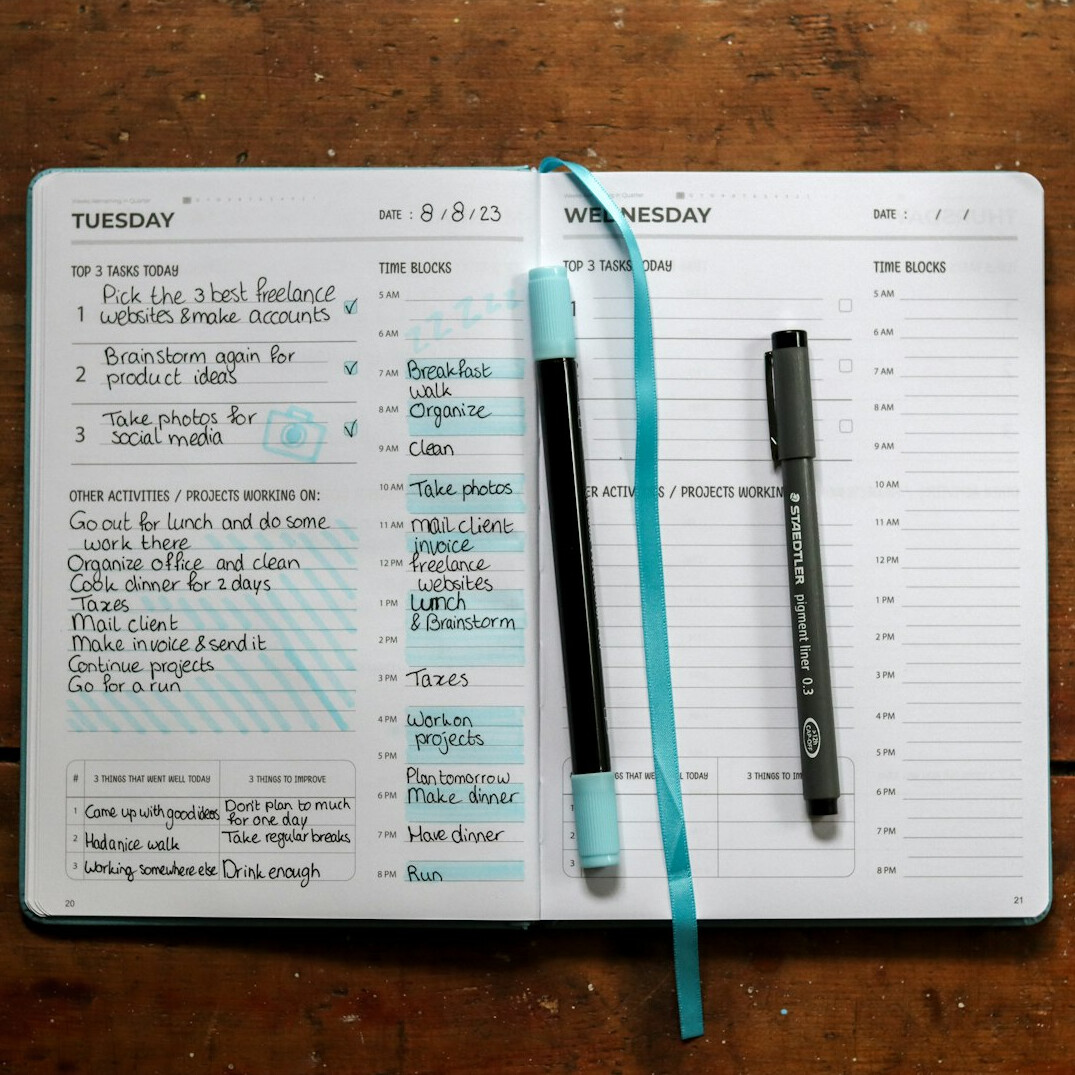 TUESDAY
DATE : 8/8/23
TOP 3 TASKS TODAY
1
Pick the 3 best freelance
websites & make accounts
2
Brainstorm again for
product ideas
3
Take photos for
social media
OTHER ACTIVITIES / PROJECTS WORKING ON:
Go out for lunch and do some
work there
Organize office and clean
Cook dinner for 2 days
Taxes
Mail client
Make invoice & send it
Continue projects
Go for a run
# 3 THINGS THAT WENT WELL TODAY 3 THINGS TO IMPROVE
1 Came up with good ideas Don't plan to much
for one day
2 Had a nice walk Take regular breaks
3 Working somewhere else Drink enough
20
TIME BLOCKS
5 AM zzzzz
6 AM
7 AM Breakfast
walk
8 AM Organize
9 AM Clean
10 AM Take photos
11 AM mail client
invoice
12 PM freelance
websites
1 PM Lunch
& Brainstorm
2 PM
3 PM Taxes
4 PM Work on
projects
5 PM
Plan tomorrow
6 PM Make dinner
7 PM Have dinner
8 PM Run
WEDNESDAY
DATE : / /
TOP 3 TASKS TODAY
1
ER ACTIV S / PROJECTS WORKIN
GS THAT WE WELL TODAY 3 THINGS TO IM
1
2
3
TIME BLOCKS
5 AM
6 AM
7 AM
8 AM
9 AM
10 AM
11 AM
12 PM
1 PM
2 PM
3 PM
4 PM
5 PM
6 PM
7 PM
8 PM
21
STAEDTLER pigment liner 0.3